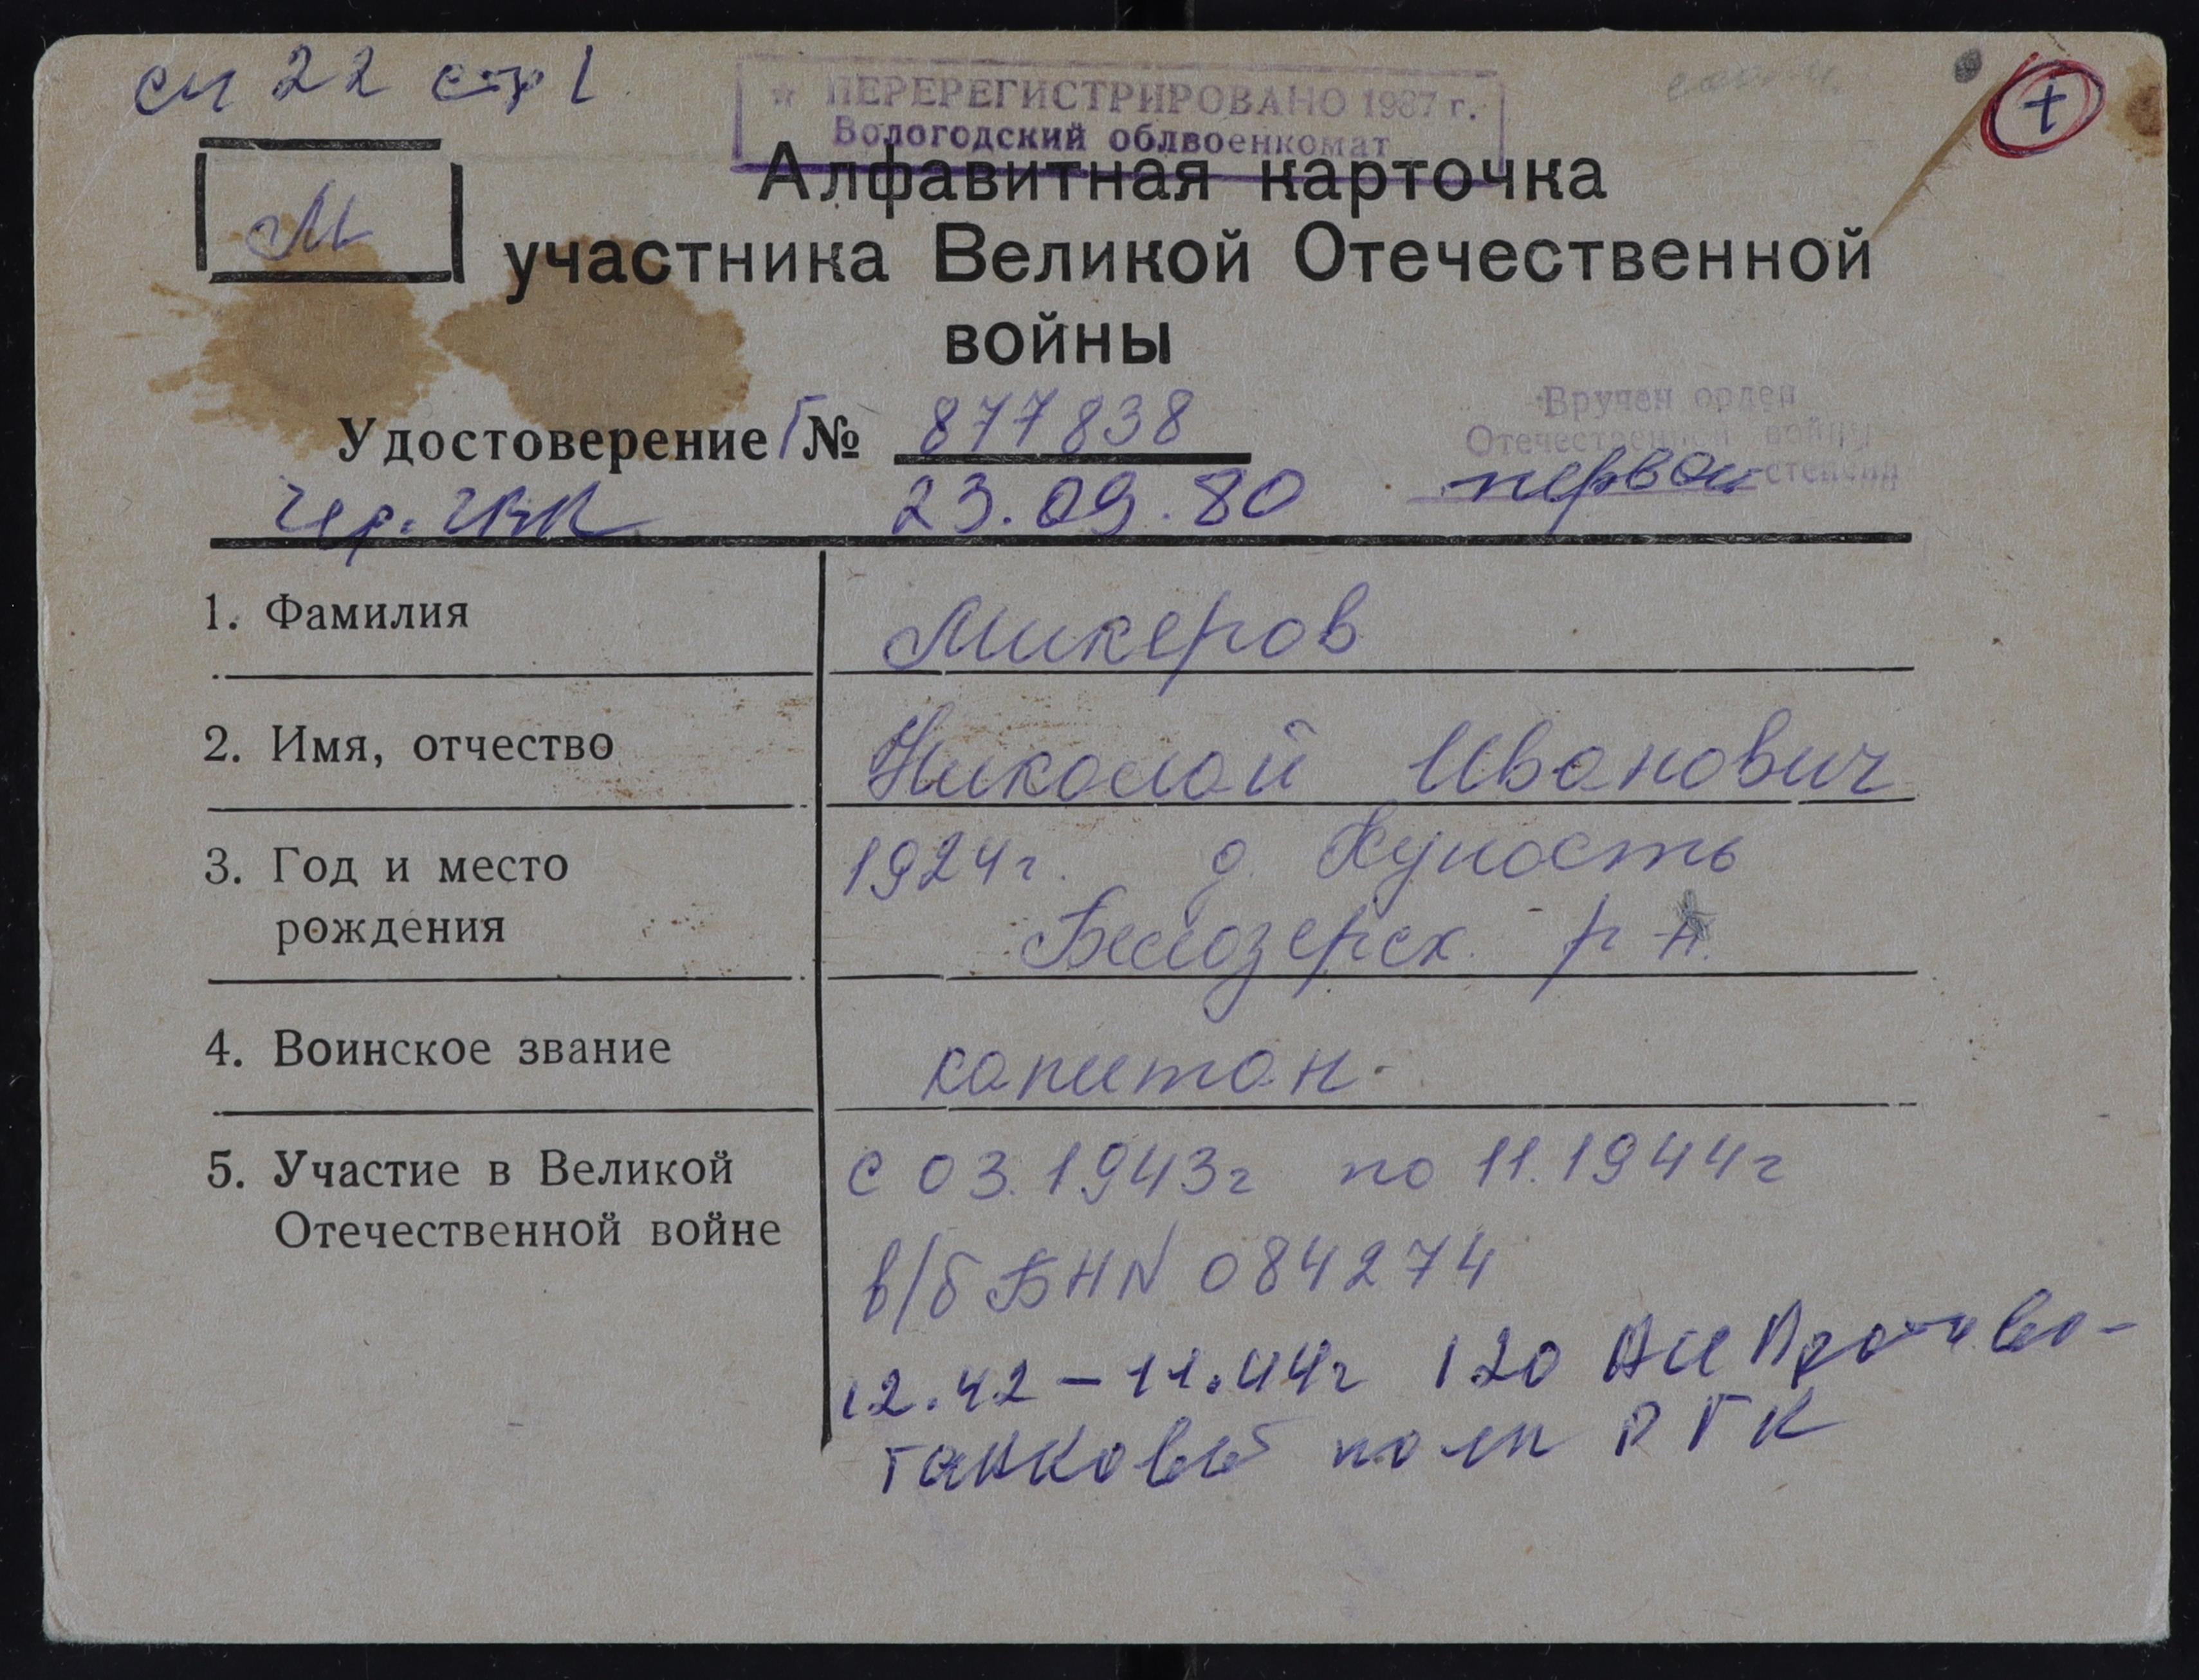 сп 22 стр 1
☆ ПЕРЕРЕГИСТРИРОВАНО 1987 г.
Вологодский облвоенкомат
+
М
Алфавитная карточка
участника Великой Отечественной
войны
Удостоверение Г № 877838
Вручен орден
Отечественной войны
первой степени
Чер. ГВК 23.09.80
1. Фамилия Микеров
2. Имя, отчество Николай Иванович
3. Год и место 1924г. д.
рождения Белозерск. р-н.
4. Воинское звание капитан.
5. Участие в Великой с 03.1943г по 11.1944г
Отечественной войне
в/б БН N 084274
12.42 – 11.44г 120 Противо-
танковый полк РГК